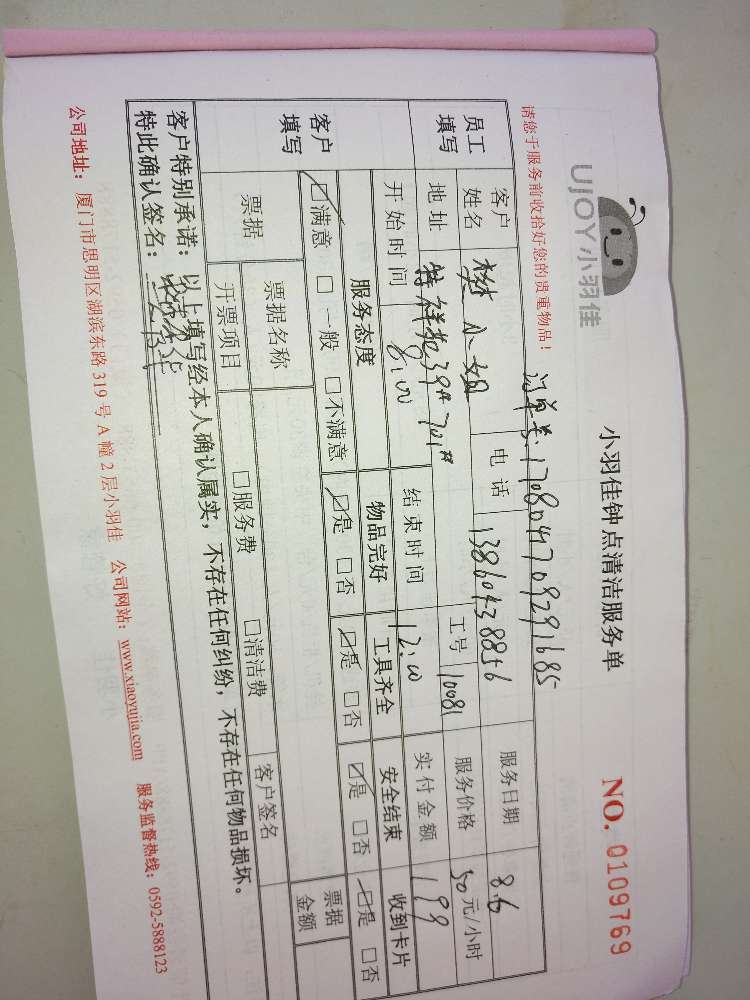 UJOY小羽佳
小羽佳钟点清洁服务单
NO. 0109769
请您于服务前收拾好您的贵重物品!
订单号:170804709291685
员工填写 客户姓名 小姐 电话 13860438856 服务日期 8.6
地址 特祥苑39# 701# 工号 10081 服务价格 50元/小时
开始时间 8:00 结束时间 12:00 实付金额 199
客户填写 服务态度 物品完好 工具齐全 安全结束 收到卡片
☑满意 □一般 □不满意 ☑是 □否 ☑是 □否 ☑是 □否 ☑是 □否
票据 票据名称 票据金额
开票项目 □服务费 □清洁费 客户签名
客户特别承诺:以上填写经本人确认属实,不存在任何纠纷,不存在任何物品损坏。
特此确认签名:
公司地址:厦门市思明区湖滨东路319号A幢2层小羽佳 公司网站:www.xiaoyujia.com 服务监督热线:0592-5888123